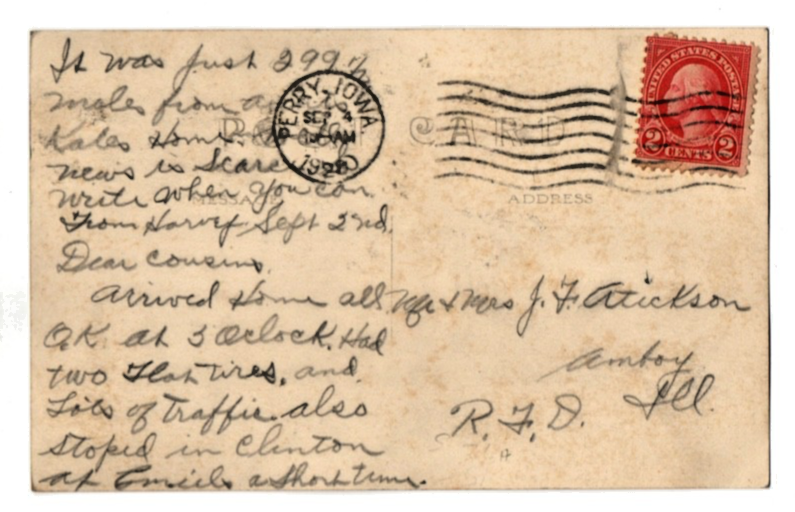 It was just 299 ½
miles from a
Kates Home.
news is Scarce
write when you can
From Harvey Sept 22nd.
Dear Cousins,
Arrived Home all
O,K. at 5 Oclock. Had
two Flat tires, and
Lots of Traffic. also
Stoped in Clinton
at Emiels a Short time.
PERRY, IOWA
SEP
AM
POST CARD
MESSAGE
ADDRESS
UNITED STATES POSTAGE
2 CENTS 2
Mr & Mrs J. F. Atickson
Amboy
Ill.
R. F. D.